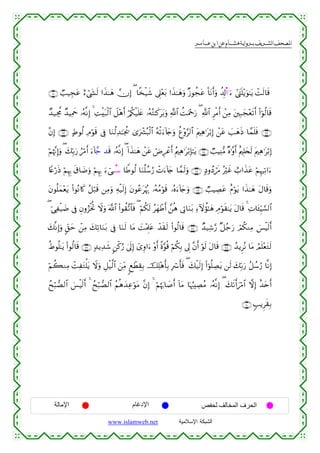 المصحف الشريف برواية هشام عن ابن عامر
قَالَتْ يَـٰوَيْلَتَىٰٓ ءَأَلِدُ وَأَنَا۠ عَجُوزٌ وَهَـٰذَا بَعْلِى شَيْخًا ۖ إِنَّ هَـٰذَا لَشَىْءٌ عَجِيبٌ
قَالُوٓا۟ أَتَعْجَبِينَ مِنْ أَمْرِ ٱللَّهِ ۖ رَحْمَتُ ٱللَّهِ وَبَرَكَـٰتُهُۥ عَلَيْكُمْ أَهْلَ ٱلْبَيْتِ ۚ إِنَّهُۥ حَمِيدٌ مَّجِيدٌ
فَلَمَّا ذَهَبَ عَنْ إِبْرَٰهِيمَ ٱلرَّوْعُ وَجَآءَتْهُ ٱلْبُشْرَىٰ يُجَـٰدِلُنَا فِى قَوْمِ لُوطٍ إِنَّ
إِبْرَٰهِيمَ لَحَلِيمٌ أَوَّٰهٌ مُّنِيبٌ يَـٰٓإِبْرَٰهِيمُ أَعْرِضْ عَنْ هَـٰذَآ ۖ إِنَّهُۥ قَدْ جَآءَ أَمْرُ رَبِّكَ ۖ وَإِنَّهُمْ
ءَاتِيهِمْ عَذَابٌ غَيْرُ مَرْدُودٍ وَلَمَّا جَآءَتْ رُسُلُنَا لُوطًا سِىٓءَ بِهِمْ وَضَاقَ بِهِمْ ذَرْعًا
وَقَالَ هَـٰذَا يَوْمٌ عَصِيبٌ وَجَآءَهُۥ قَوْمُهُۥ يُهْرَعُونَ إِلَيْهِ وَمِن قَبْلُ كَانُوا۟ يَعْمَلُونَ
ٱلسَّيِّـَٔاتِ ۚ قَالَ يَـٰقَوْمِ هَـٰٓؤُلَآءِ بَنَاتِى هُنَّ أَطْهَرُ لَكُمْ ۖ فَٱتَّقُوا۟ ٱللَّهَ وَلَا تُخْزُونِ فِى ضَيْفِىٓ ۖ
أَلَيْسَ مِنكُمْ رَجُلٌ رَّشِيدٌ قَالُوا۟ لَقَدْ عَلِمْتَ مَا لَنَا فِى بَنَاتِكَ مِنْ حَقٍّ وَإِنَّكَ
لَتَعْلَمُ مَا نُرِيدُ قَالَ لَوْ أَنَّ لِى بِكُمْ قُوَّةً أَوْ ءَاوِىٓ إِلَىٰ رُكْنٍ شَدِيدٍ قَالُوا۟ يَـٰلُوطُ
إِنَّا رُسُلُ رَبِّكَ لَن يَصِلُوٓا۟ إِلَيْكَ ۖ فَأَسْرِ بِأَهْلِكَ بِقِطْعٍ مِّنَ ٱلَّيْلِ وَلَا يَلْتَفِتْ مِنكُمْ
أَحَدٌ إِلَّا ٱمْرَأَتَكَ ۖ إِنَّهُۥ مُصِيبُهَا مَآ أَصَابَهُمْ ۚ إِنَّ مَوْعِدَهُمُ ٱلصُّبْحُ ۚ أَلَيْسَ ٱلصُّبْحُ
بِقَرِيبٍ
الحرف المخالف لحفص الإدغام الإمالة
الشبكة الإسلامية www.islamweb.net